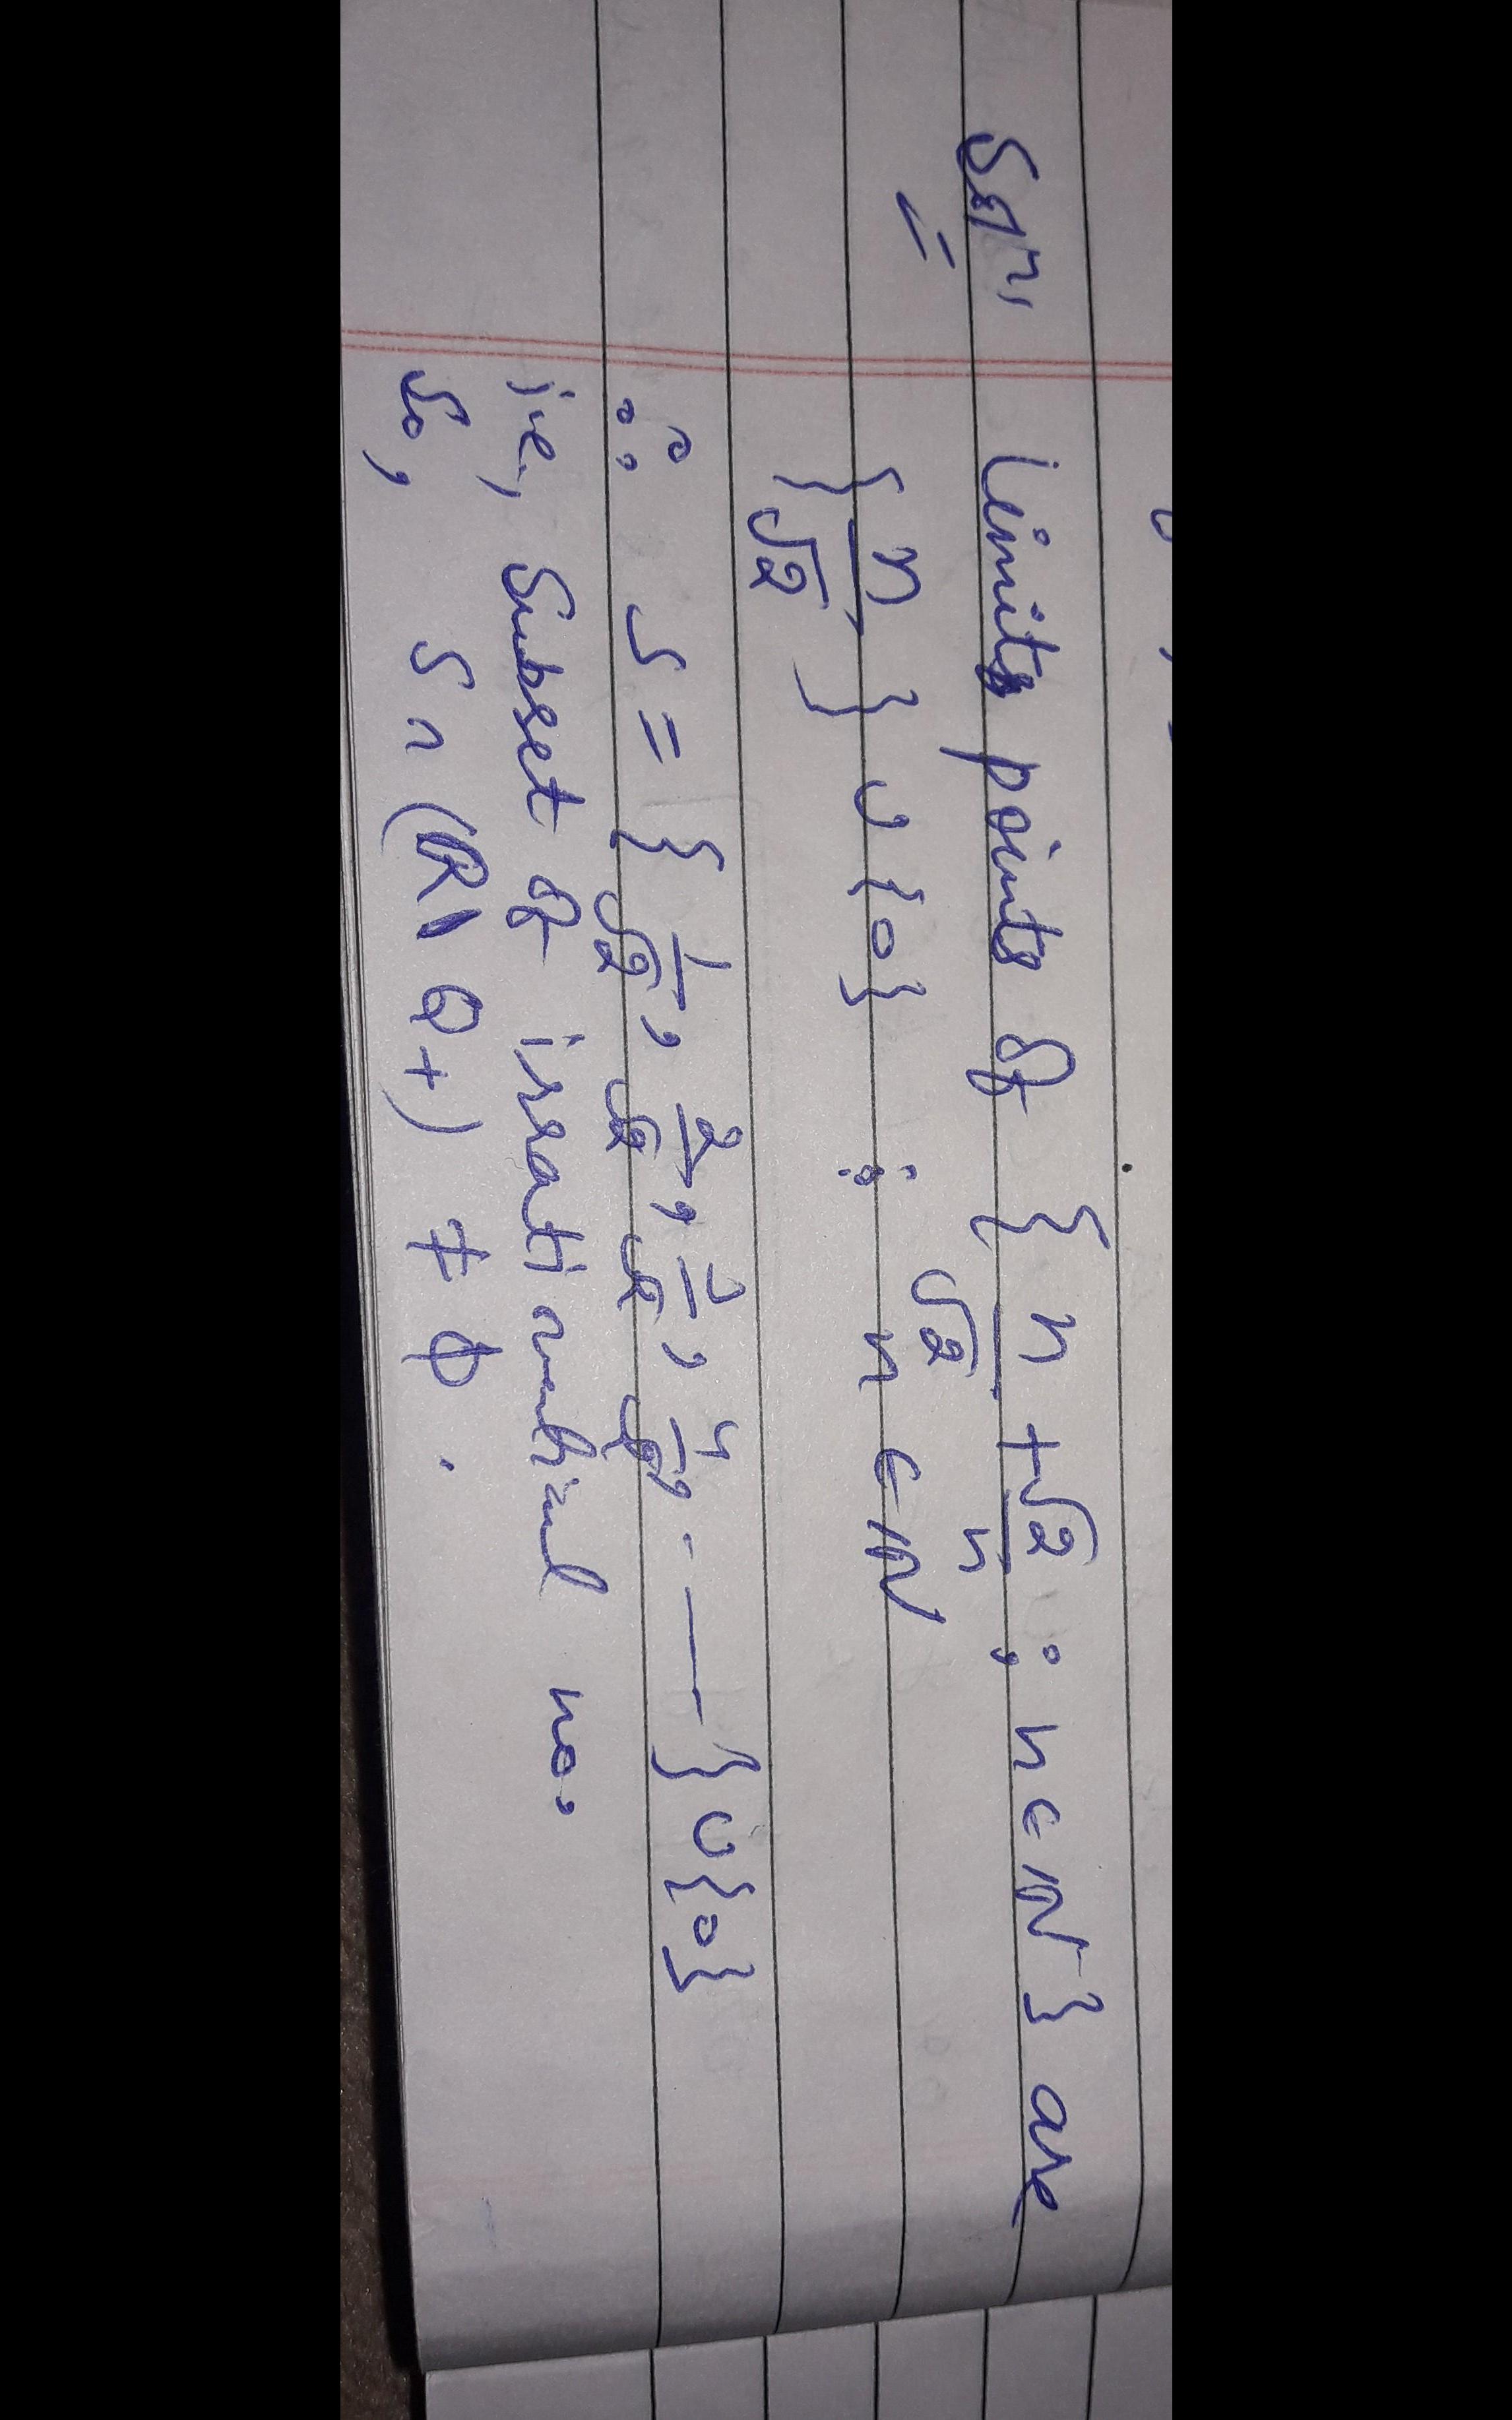 Solⁿ, Limits points of { n/√2 + √2/n ; n ∈ ℕ } are
{ n/√2 } ∪ {0} ; n ∈ ℕ
∴ S = { 1/√2, 2/√2, 3/√2, 4/√2, . — } ∪ {0}
i.e., Subset of irrational no.
So, S ∩ (ℝ \ Q+) ≠ ϕ .